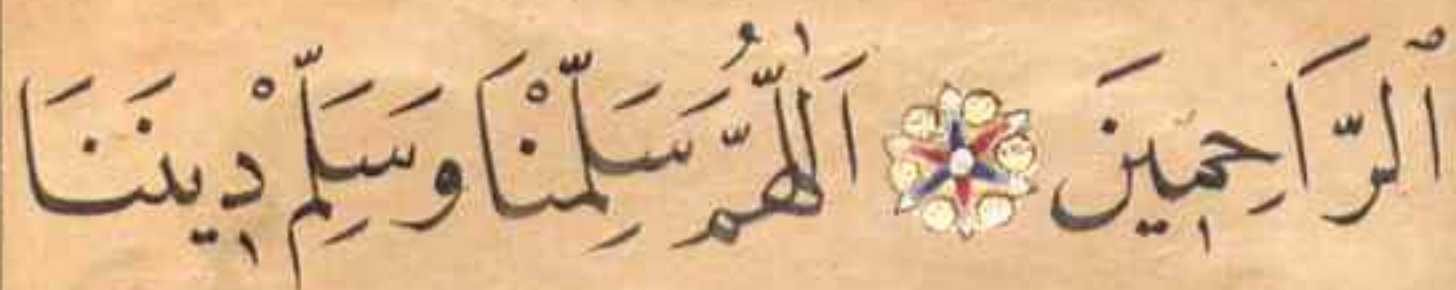 ٱلرَّاحِمِينَ اَللّٰهُمَّ سَلِّمْنَا وَسَلِّمْ دِينَنَا